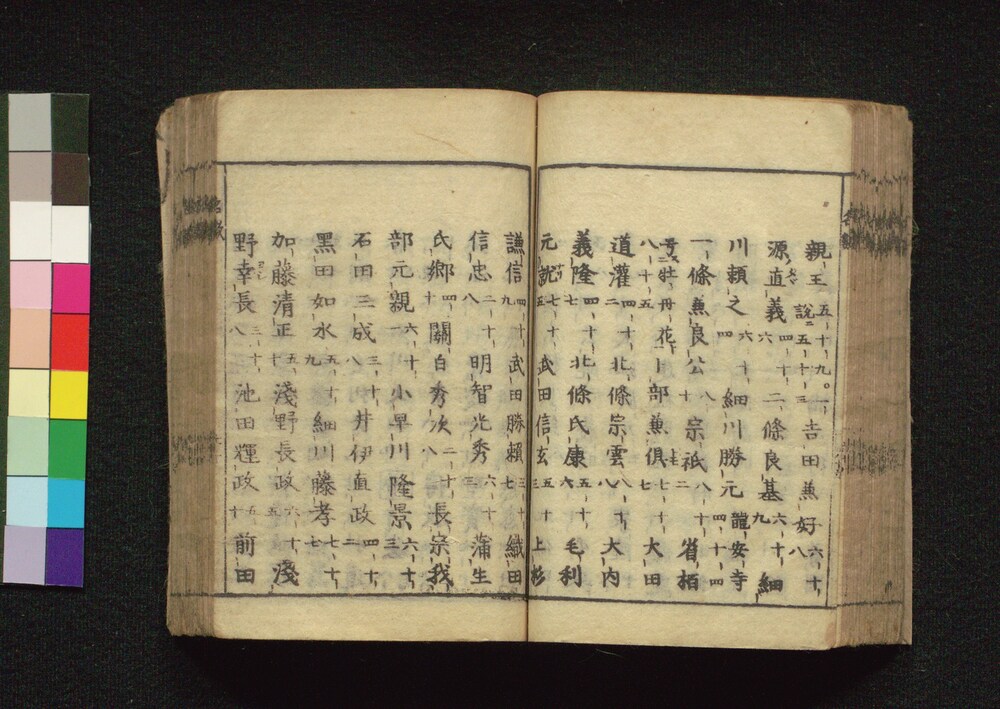 親王 五十九。一說ニ五十三 吉田兼好 六十八
源直義 四十六 二條良基 六十九 細
川頼之 六十四 細川勝元 四十四 龍安寺
一條兼良公 八十 宗祇 八十二 宵柏
号牡丹花 八十五 卜部兼倶 七十七 大田
道灌 四十二 北條宗雲 八十八 大内
義隆 四十七 北條氏康 五十六 毛利
元就 七十五 武田信玄 五十三 上杉
謙信 四十九 武田勝頼 三十七 織田
信忠 二十八 明智光秀 六十三 蒲生
氏郷 四十 關白秀次 二十八 長宗我
部元親 六十一 小早川隆景 六十三
石田三成 三十八 井伊直政 四十二
黑田如水 五十九 細川藤孝 七十七
加藤清正 五十 淺野長政 六十五 淺
野幸長 三十八 池田輝政 五十 前田